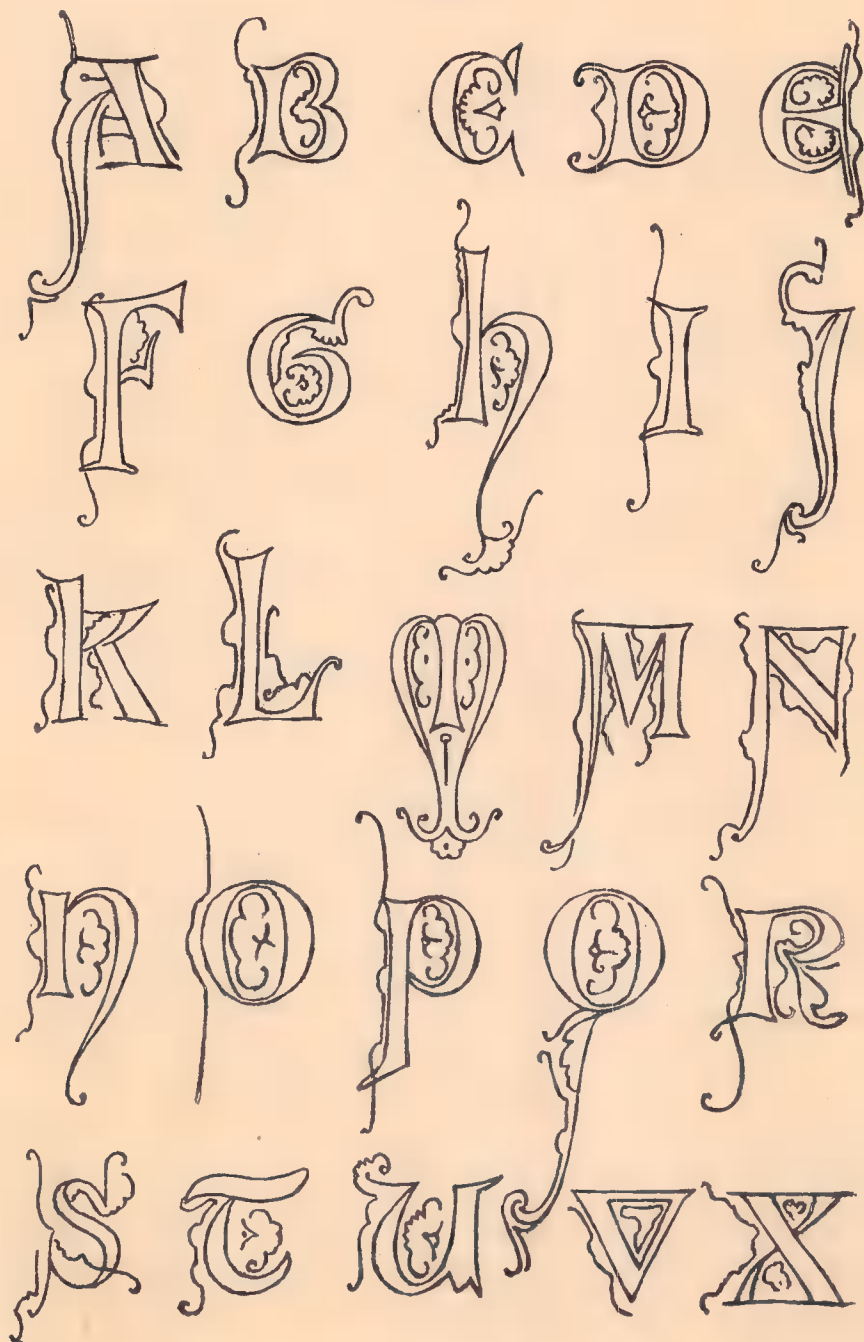 A B C D E
F G h I J
K L M M N
N O P Q R
S T U V X